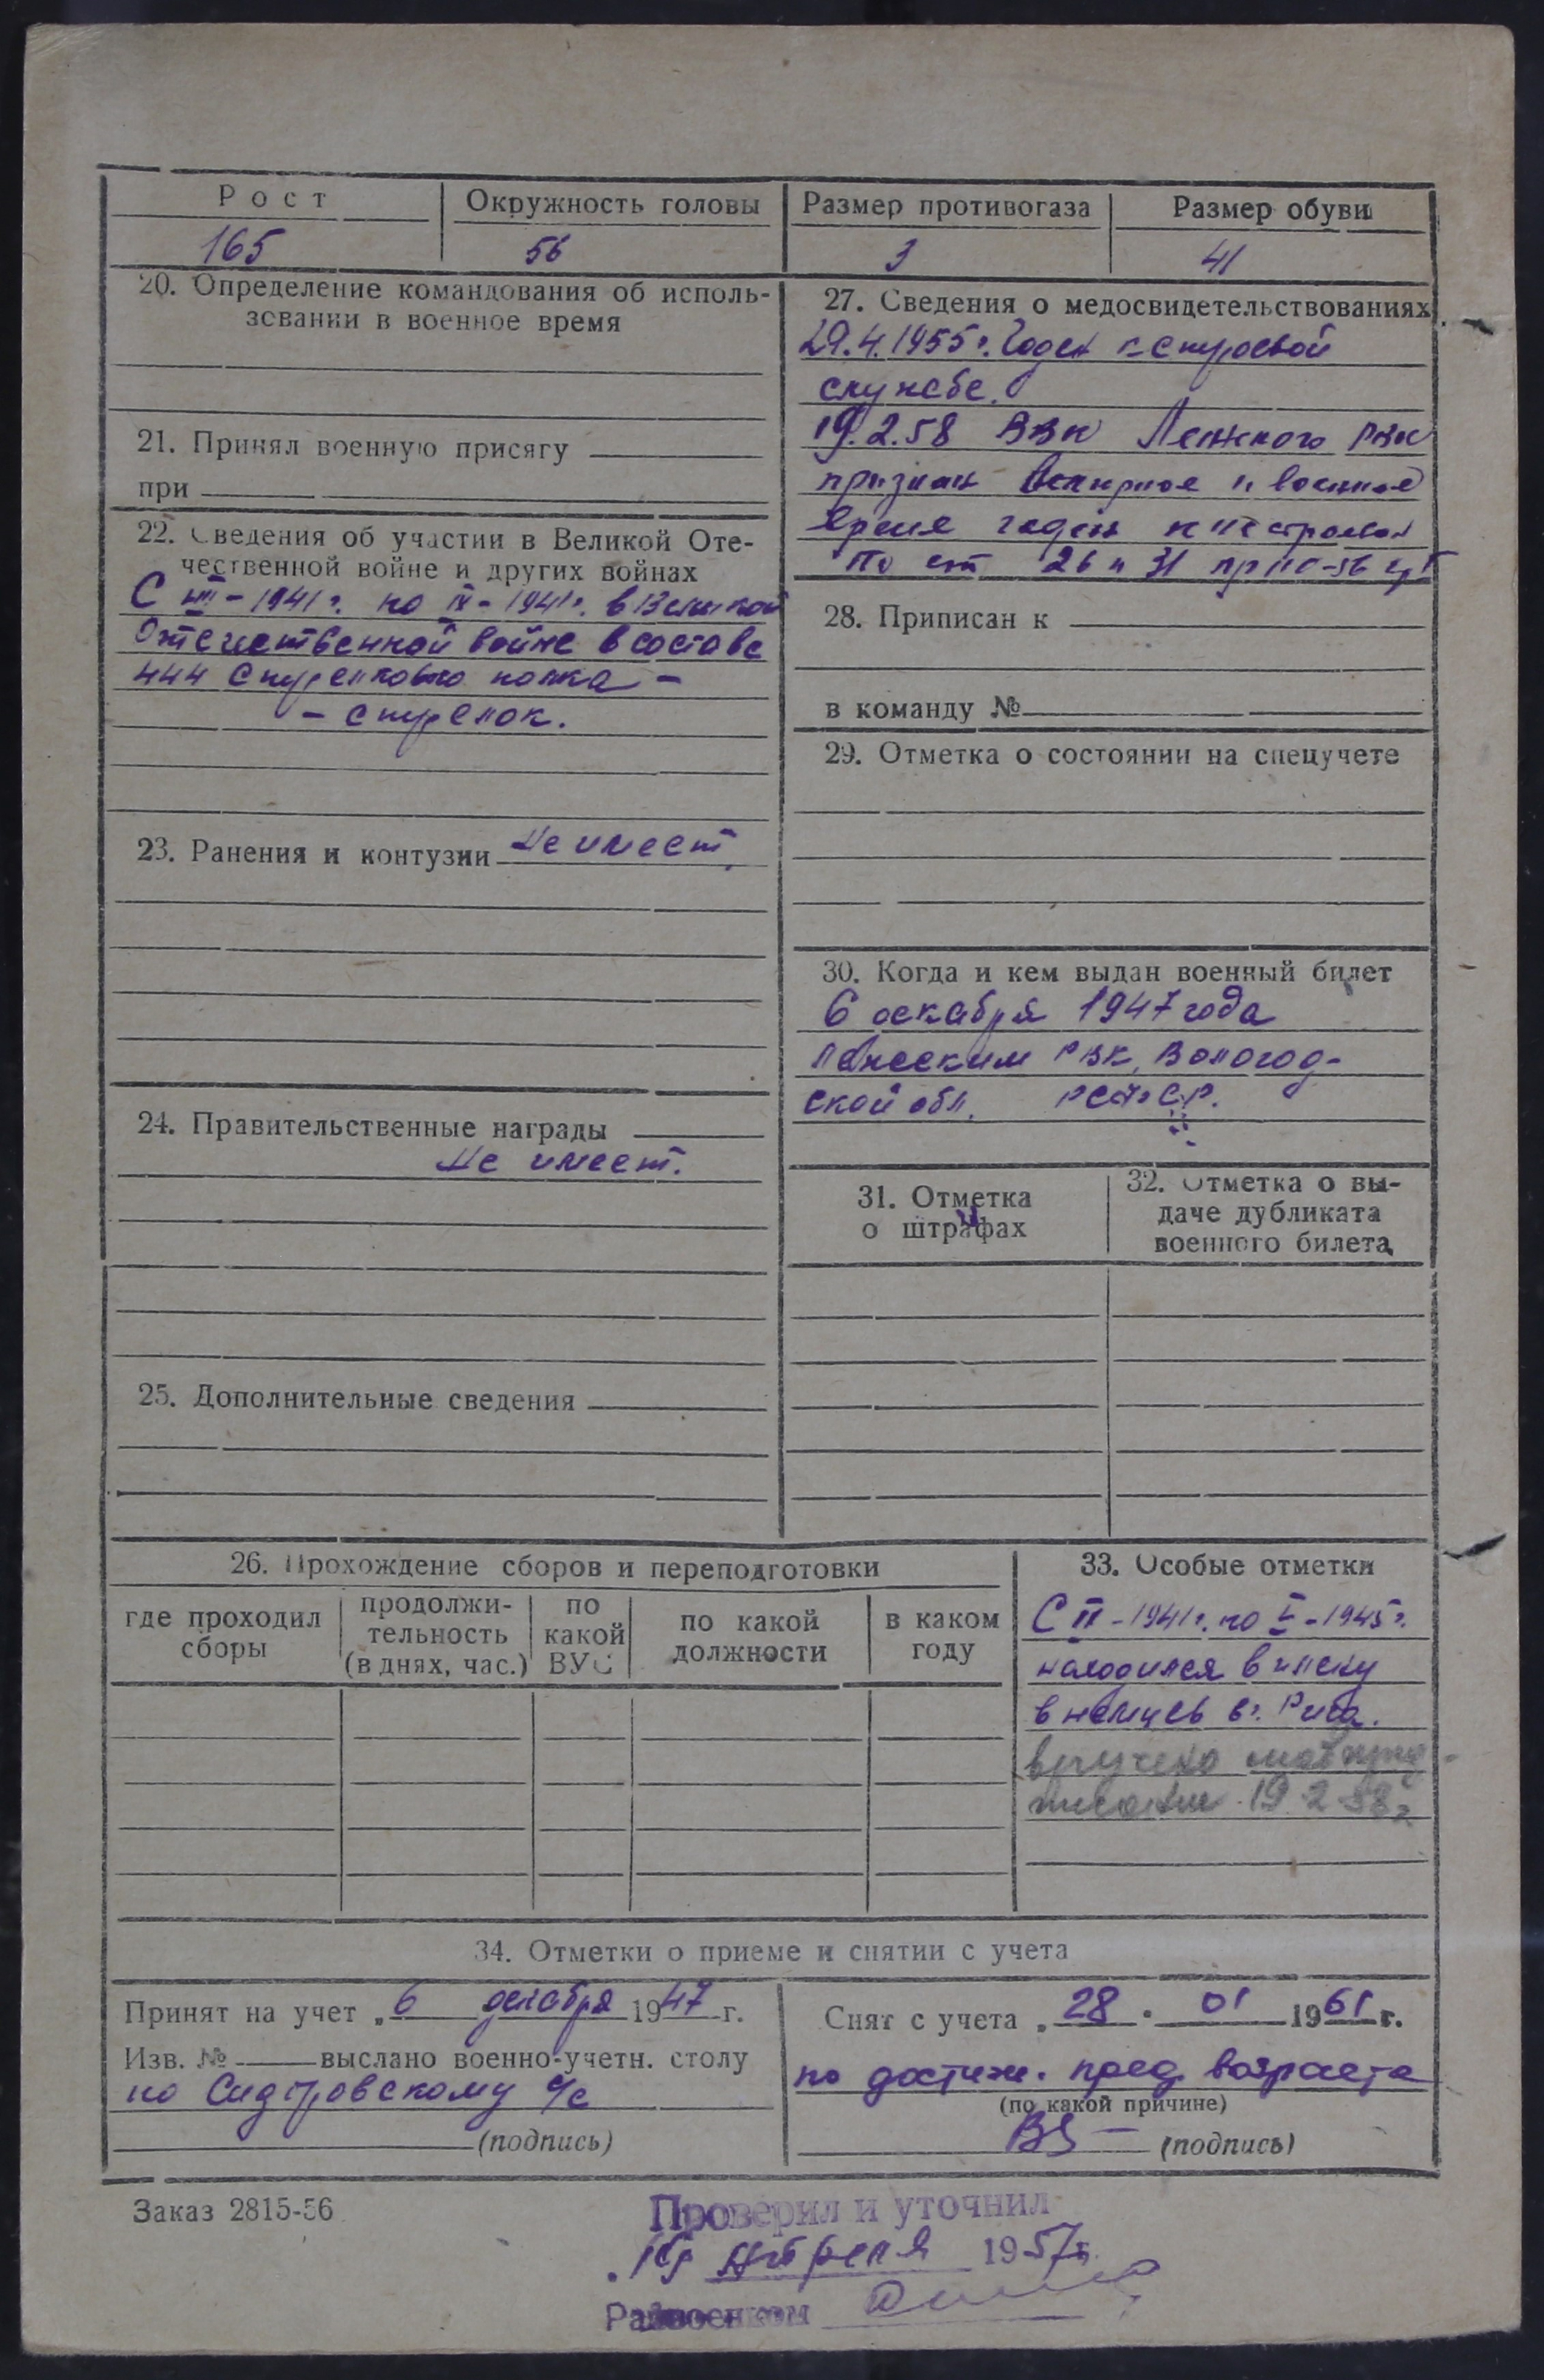 Рост Окружность головы Размер противогаза Размер обуви
165 56 3 41
20. Определение командования об исполь-
зовании в военное время
21. Принял военную присягу
при
22. Сведения об участии в Великой Оте-
чественной войне и других войнах
С VIII-1941г. по IX-1941г. в Великой
Отечественной войне в составе
444 стрелкового полка -
- стрелок.
23. Ранения и контузии Не имеет.
24. Правительственные награды
Не имеет.
25. Дополнительные сведения
27. Сведения о медосвидетельствованиях
29.4.1955г. Годен к строевой
службе.
19.2.58 ВВК Лежского РВК
признан в военное
время годен к нестроевой
по ст 26 и 31 пр
28. Приписан к
в команду №
29. Отметка о состоянии на спецучете
30. Когда и кем выдан военный билет
6 декабря 1947 года
Лежским РВК, Вологод-
ской обл. РСФСР.
31. Отметка
о штрафах
32. Отметка о вы-
даче дубликата
военного билета
26. Прохождение сборов и переподготовки
где проходил
сборы
продолжи-
тельность
(в днях, час.)
по
какой
ВУС
по какой
должности
в каком
году
33. Особые отметки
С 1941г. по V-1945г.
находился в плену
в немцев в г. Рига.
вручено мобпред-
писание 19.2.58г
34. Отметки о приеме и снятии с учета
Принят на учет „6 декабря 1947 г.
Изв. № выслано военно-учетн. столу
по Сидоровскому с/с
(подпись)
Снят с учета „28" 01 1961 г.
по достиж. пред. возраста
(по какой причине)
(подпись)
Заказ 2815-56
Проверил и уточнил
апреля 1957г.
Райвоенком